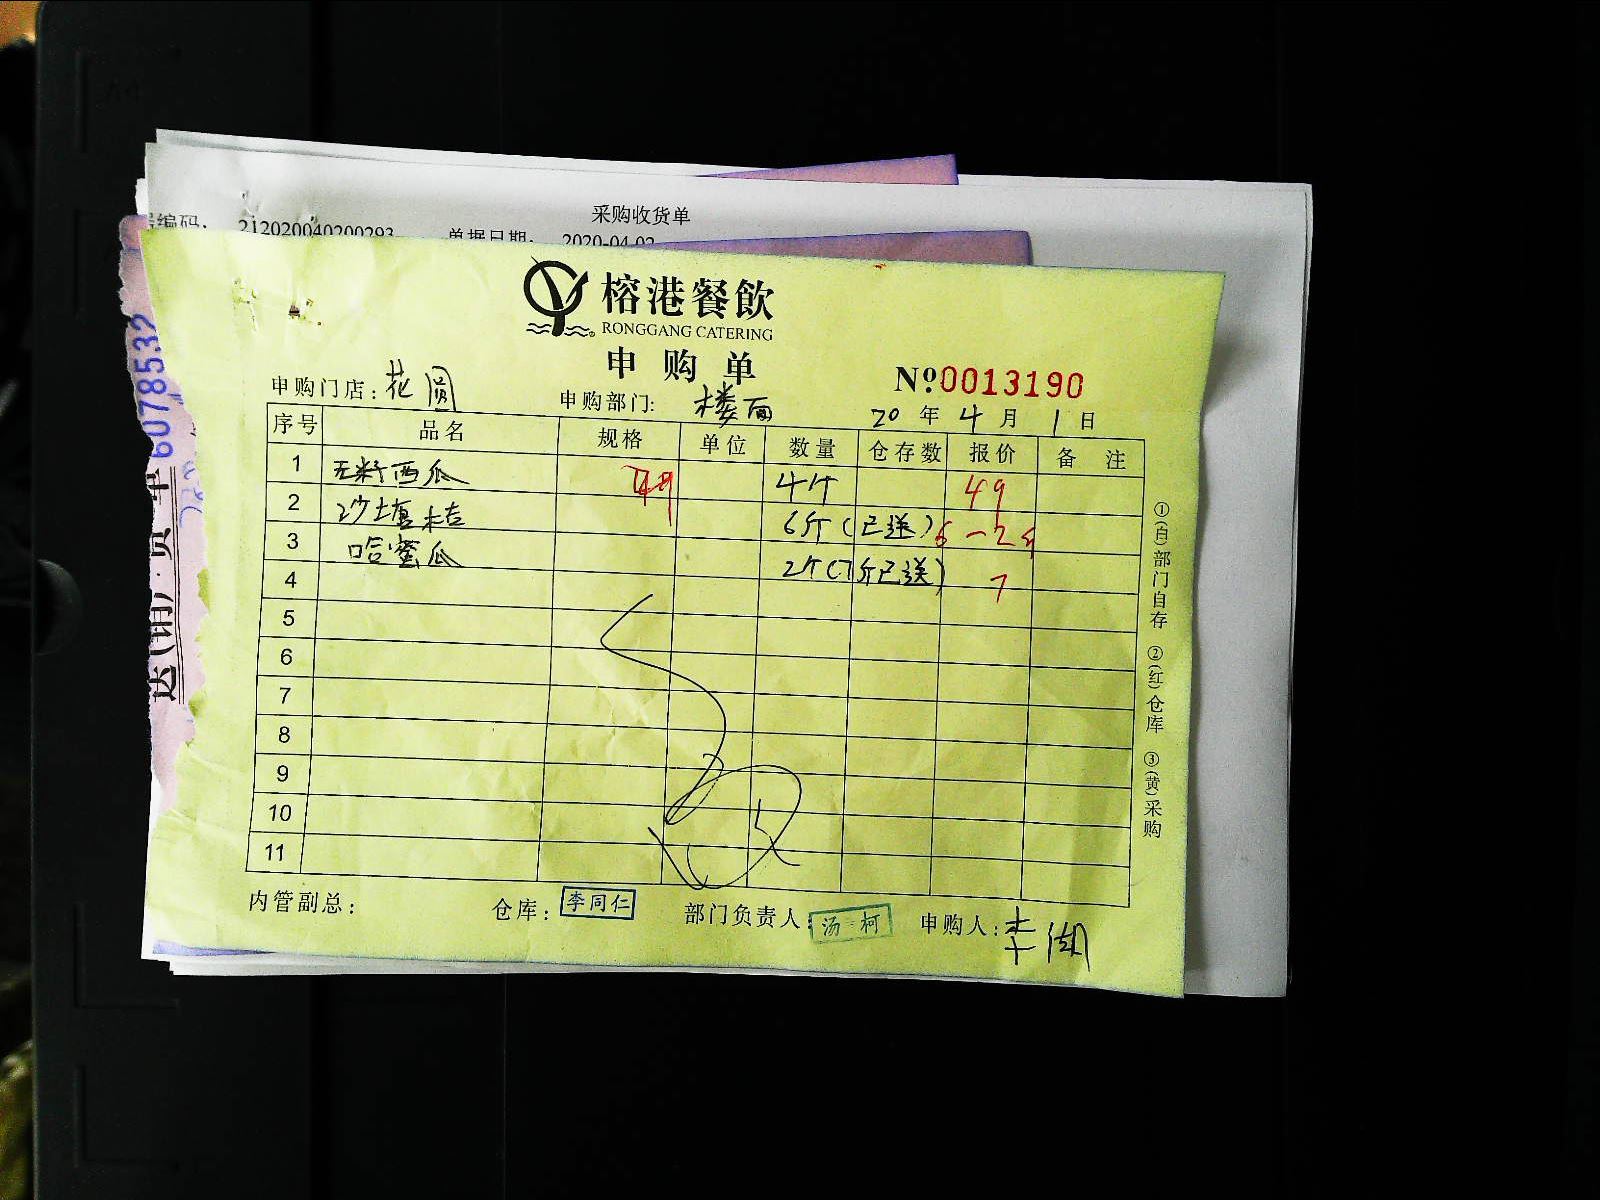 采购收货单
编码： 212020040200293 单据日期： 2020-04-02
榕港餐飲
RONGGANG CATERING
申购单
№0013190
申购门店：花圆 申购部门：楼面 20年4月1日
序号 品名 规格 单位 数量 仓存数 报价 备注
1 无籽西瓜 4个 49
2 沙塘桔 6斤（已送）
3 哈蜜瓜 2个（7斤已送） 7
4
5
6
7
8
9
10
11
内管副总： 仓库：李同仁 部门负责人：汤柯 申购人：李
①（白）部门自存 ②（红）仓库 ③（黄）采购
6078532